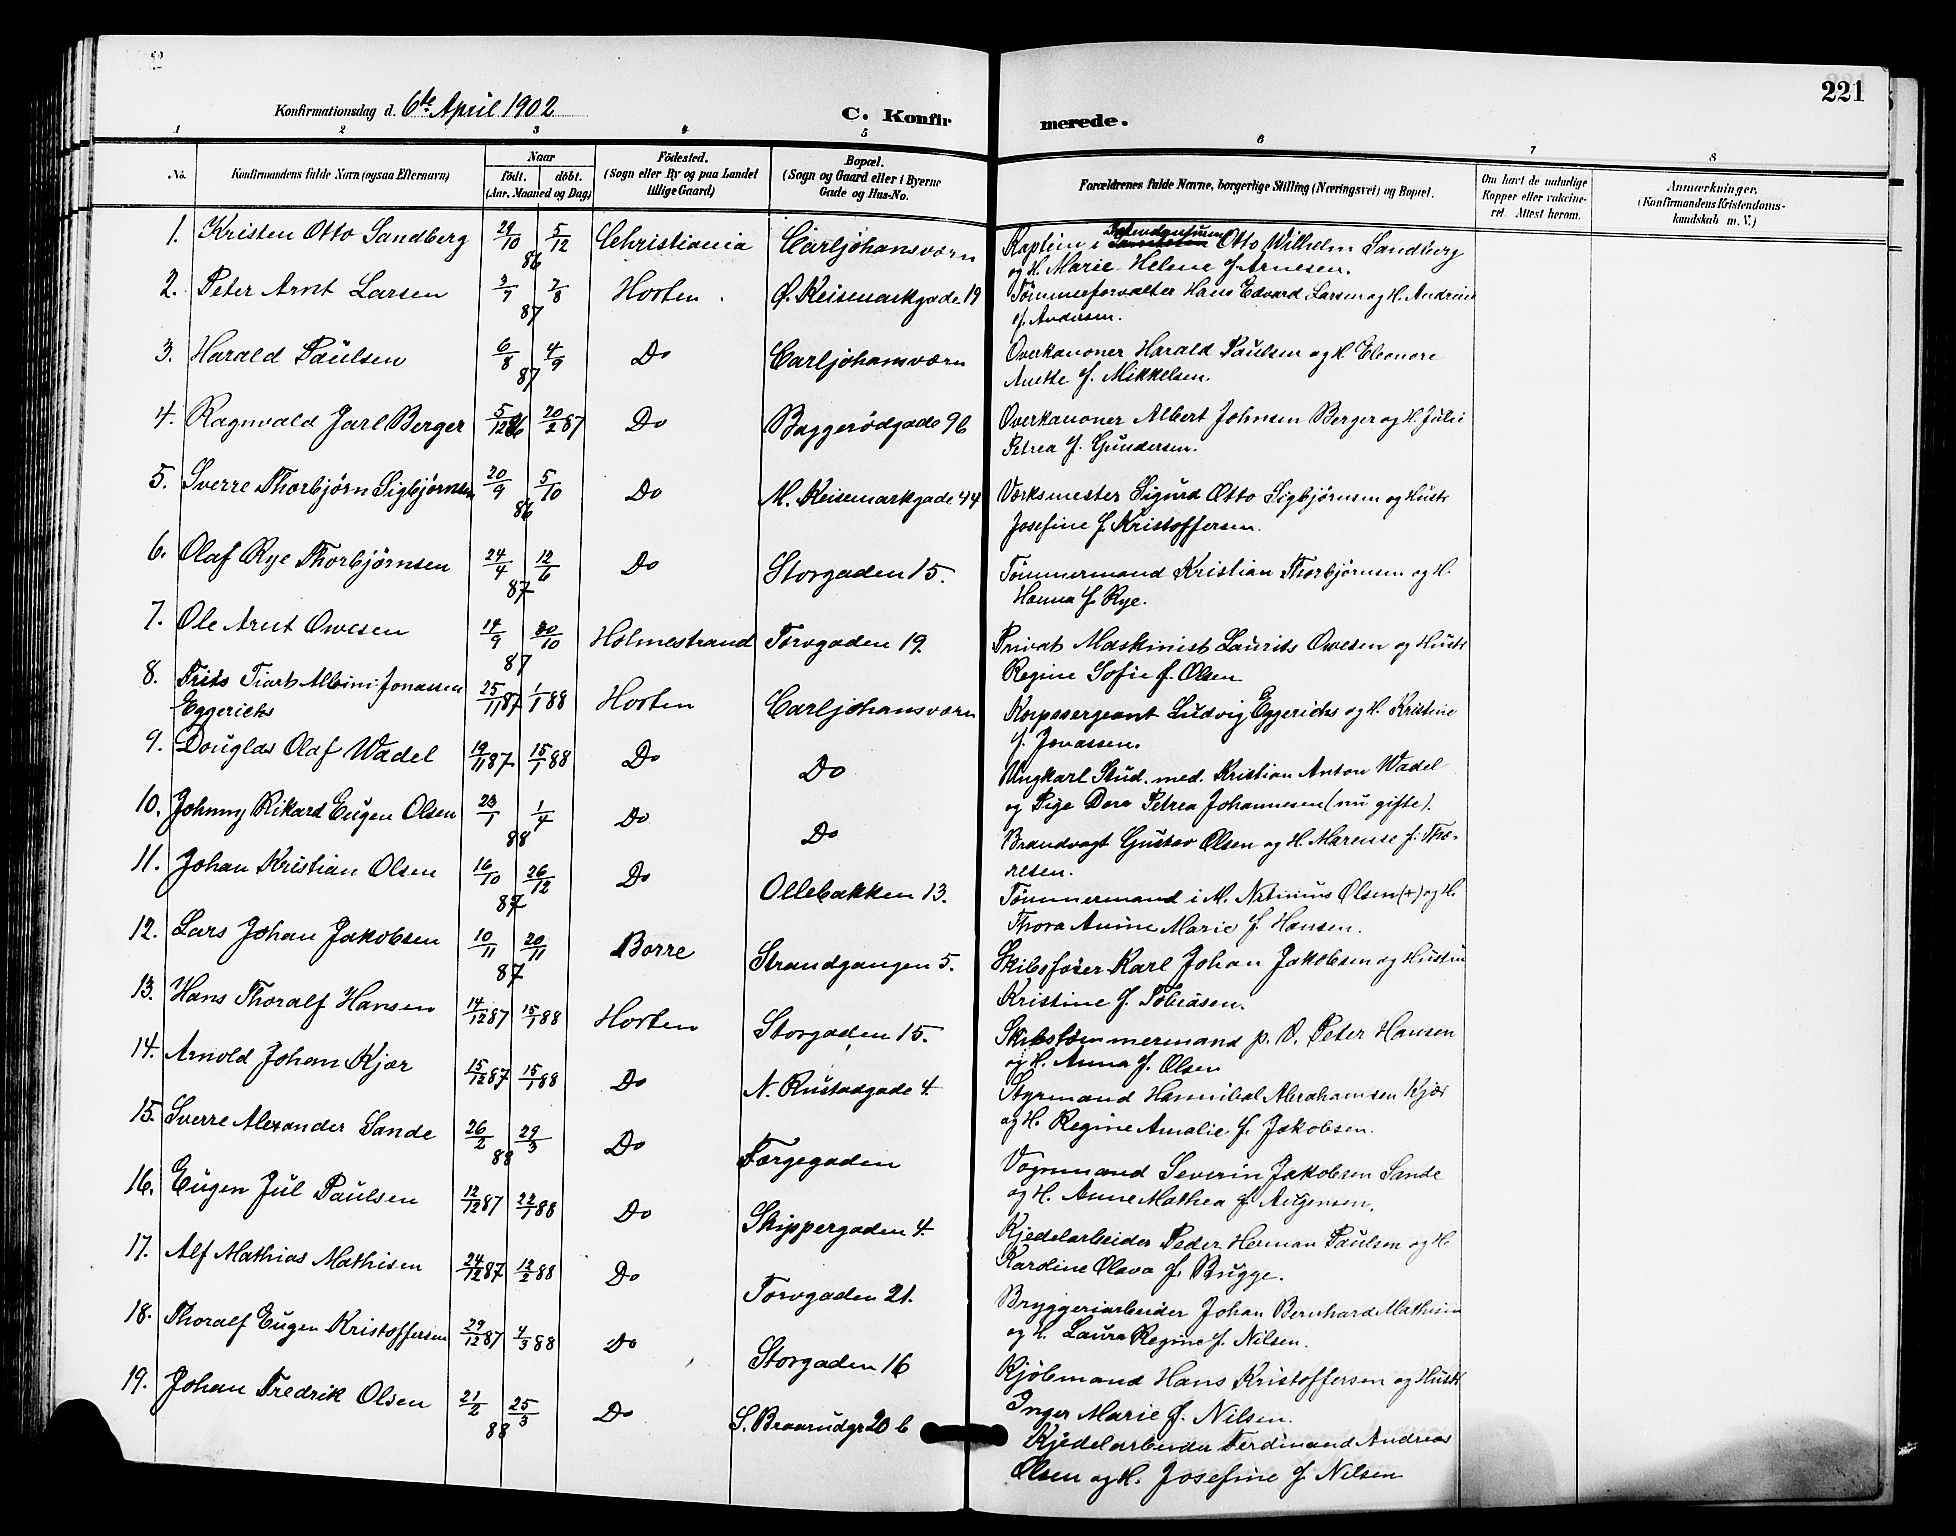 221
Konfirmationsdag d. 6te April 1902
C. Konfirmerede.
1 2 3 4 5 6 7 8
No. Konfirmandens fulde Navn (ogsaa Efternavn) Naar födt. döbt. (Aar, Maaned og Dag) Födested. (Sogn eller By og paa Landet tillige Gaard) Bopæl. (Sogn og Gaard eller i Byerne Gade og Hus-No. Forældrenes fulde Navne, borgerlige Stilling (Næringsvei) og Bopæl. Om havt de naturlige Kopper eller vaccineret. Attest herom. Anmærkninger. (Konfirmandens Kristendomskundskab m. V.)
1. Kristen Otto Sandberg 29/10 5/12 86 Christiania Carljohansværn Kaptein i Otto Wilhelm Sandberg
og H. Marie Helene f. Arnesen.
2. Peter Arnt Larsen 3/7 7/8 87 Horten. Ø. Keisemarkgade 19 Tømmerforvalter Hans Edvard Larsen og H. Andrine
f. Andersen.
3. Harald Paulsen 6/8 4/9 87 Do Carljohansværn Overkanoner Harald Paulsen og H. Eleonore
Anette f. Mikkelsen.
4. Ragnvald Jarl Berger 5/12 86 20/2 87 Do Baggerødgade 9b Overkanoner Albert Johnsen Berger og H. Julie
Petrea f. Gundersen.
5. Sverre Thorbjørn Sigbjørnsen 20/9 5/10 86 Do M. Keisemarkgade 44 Værksmester Sigurd Otto Sigbjørnsen og Hustr
Josefine f. Kristoffersen.
6. Olaf Rye Thorbjørnsen 24/4 12/6 87 Do Storgaden 15. Tømmermand Kristian Thorbjørnsen og H.
Hanna f. Rye.
7. Ole Arnt Owesen 14/9 30/10 87 Holmestrand Torvgaden 19. Privat Maskinist Laurits Owesen og Hustr
Regine Sofie f. Olsen
8. Frits Tiart Albini Jonassen Eggerichs 25/11 87 1/1 88 Horten Carljohansværn Korpssergeant Ludvig Eggerichs og H. Kristine
f. Jonassen.
9. Douglas Olaf Wadel 19/11 87 15/1 88 Do Do Ungkarl Stud. med. Kristian Anton Wadel
og Pige Dora Petrea Johannesen (nu gifte).
10. Johnny Rikard Eugen Olsen 23/1 1/4 88 Do Do Brandvagt Gustav Olsen og H. Marense f. Tho-
resen.
11. Johan Kristian Olsen 16/10 26/12 87 Do Ollebakken 13. Tømmermand i M. Olsen (+) og H.
Thora Anine Marie f. Hansen.
12. Lars Johan Jakobsen 10/11 20/11 87 Borre Strandgangen 5. Skibsfører Karl Johan Jakobsen og Hustru
Kristine f. Tobiasen.
13. Hans Thoralf Hansen 14/12 87 15/1 88 Horten Storgaden 15. Skibstømmermand p. V. Peter Hansen
og H. Anna f. Olsen
14. Arnold Johan Kjær 15/12 87 15/1 88 Do N. Rustadgade 4. Styrmand Hannibal Abrahamsen Kjær
og H. Regine Amalie f. Jakobsen.
15. Sverre Alexander Sande 26/2 29/3 88 Do Færgegaden Vognmand Severin Jakobsen Sande
og H. Anne Mathea f.
16. Eugen Jul Paulsen 12/12 87 22/1 88 Do Skippergaden 4. Kjedelarbeider Peder Herman Paulsen og H.
Kardine Olava f. Bugge.
17. Alf Mathias Mathisen 24/12 87 12/2 88 Do Torvgaden 21. Bryggeriarbeider Johan Bernhard Mathisen
og H. Laura Regine f. Nilsen.
18. Thoralf Eugen Kristoffersen 29/12 87 4/3 88 Do Storgaden 16 Kjøbmand Hans Kristoffersen og Hustr
Inger Marie f. Nilsen.
19. Johan Fredrik Olsen 21/2 25/3 88 Do S. Braarudgt 20 b Kjedelarbeider Ferdinand Andreas
Olsen og H. Josefine f. Nilsen